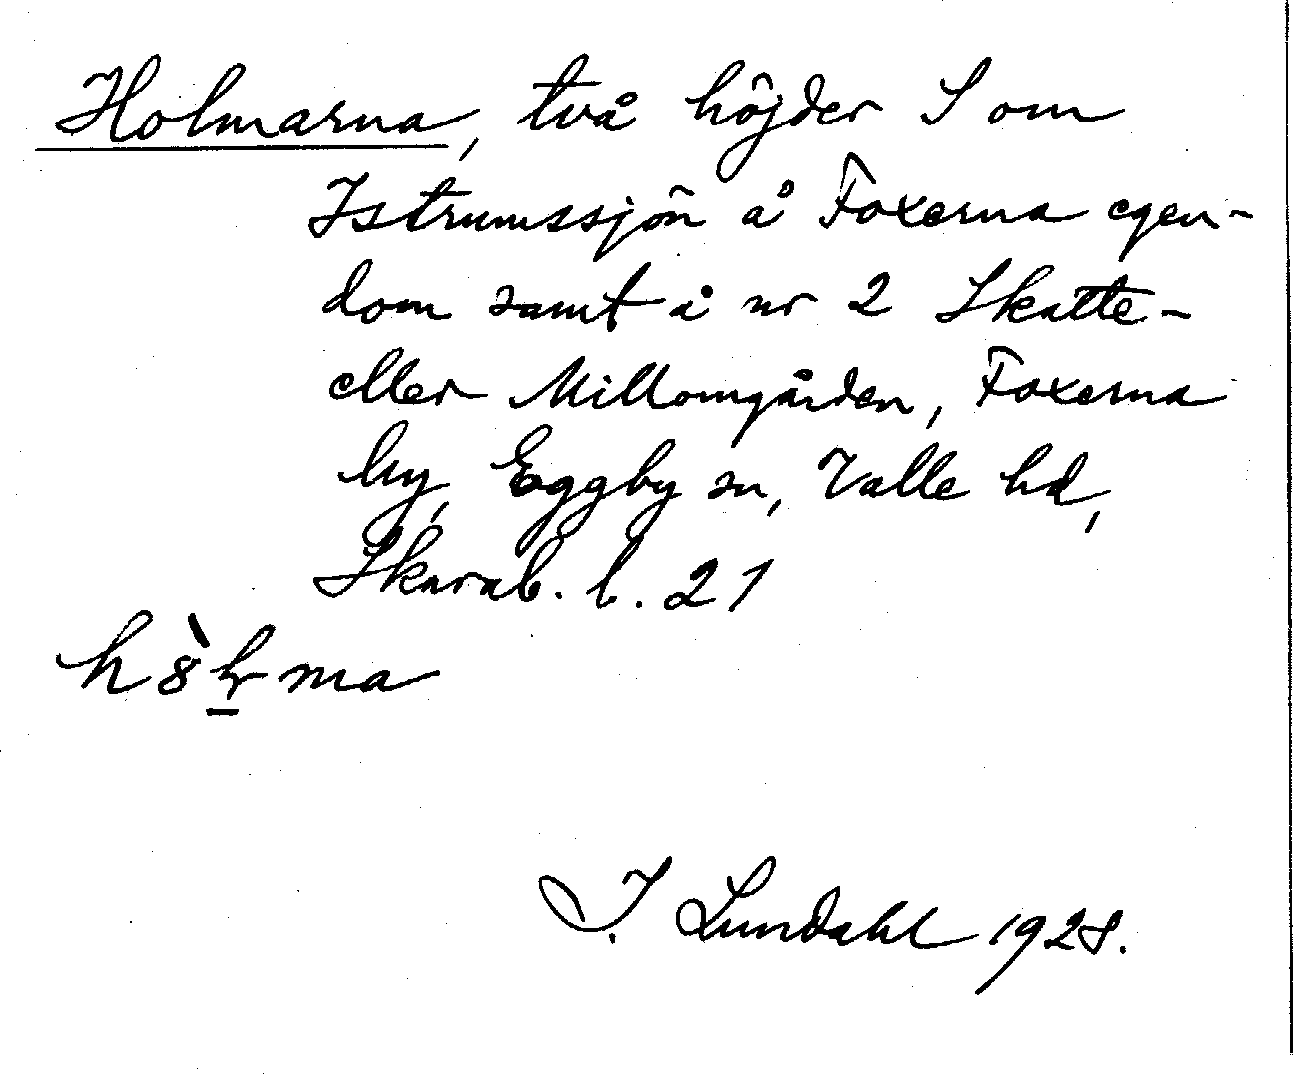 Holmarna, två höjder S om
Istrumssjön å Foxerna egen-
dom samt å nr 2 Skatte-
eller Millomgården, Foxerna
by, Eggby sn, Valle hd,
Skarab. l. 21
I. Lundahl 1928.